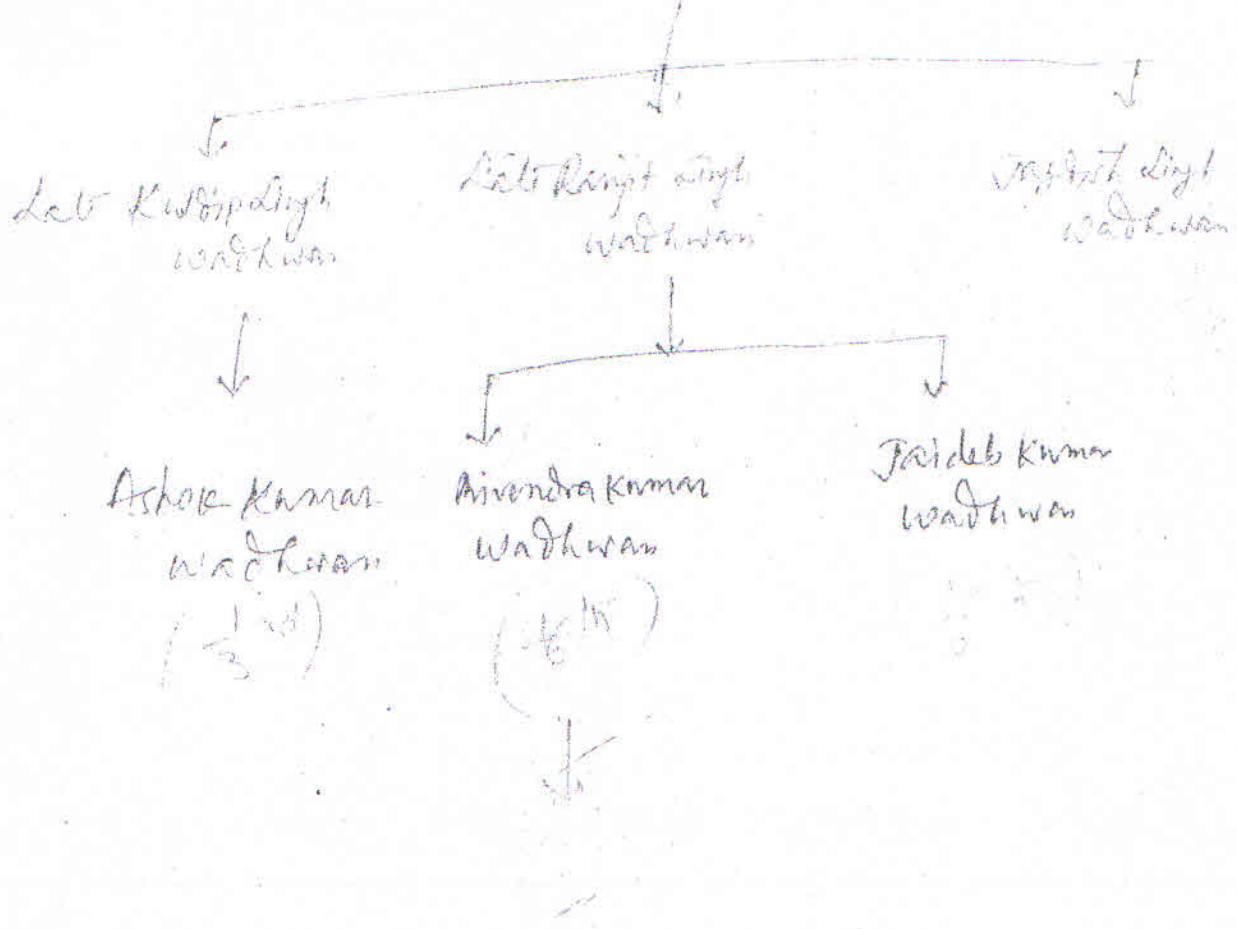 Late Kuldip Singh
Wadhwan
Late Ranjit Singh
Wadhwan
Singh
Wadhwan
Ashok Kumar
Wadhwan
(1/3rd)
Kumar
Wadhwan
(1/6th)
Jaideb Kumar
Wadhwan